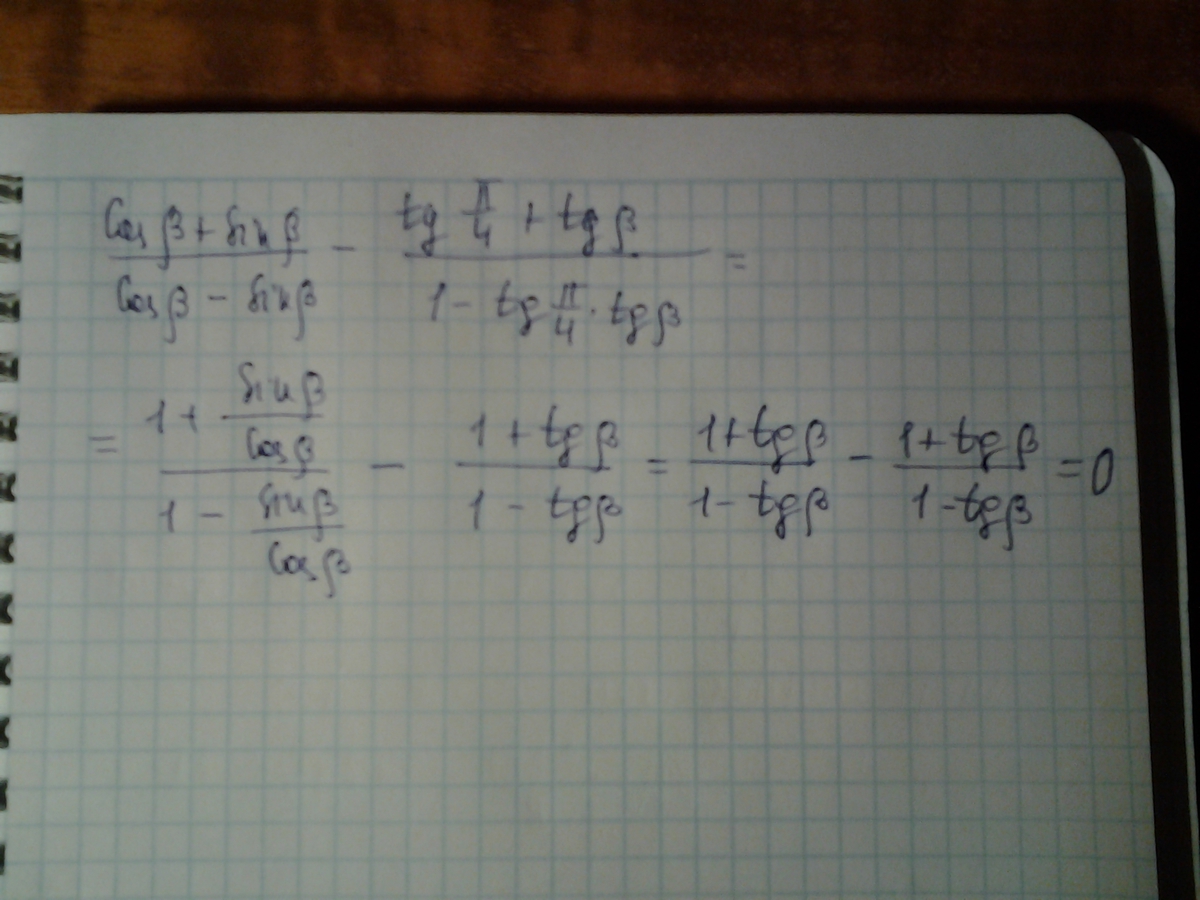 (cos β + sin β)/(cos β − sin β) − (tg π/4 + tg β)/(1 − tg π/4 · tg β) =
= (1 + sin β/cos β)/(1 − sin β/cos β) − (1 + tg β)/(1 − tg β) = (1 + tg β)/(1 − tg β) − (1 + tg β)/(1 − tg β) = 0